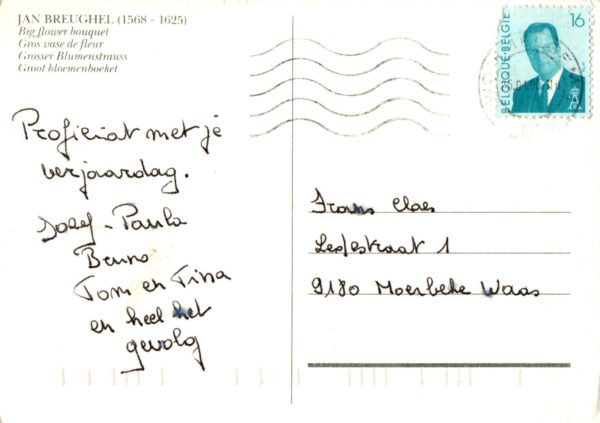 JAN BREUGHEL (1568 - 1625)
Big flower bouquet
Gros vase de fleur
Grosser Blumenstrauss
Groot bloemenboeket
Proficiat met je
verjaardag.
Jozef - Paula
Bruno
Tom en Tina
en heel het
gevolg
16
BELGIQUE-BELGIË
Frans Claes
Ledestraat 1
9180 Moerbeke Waas